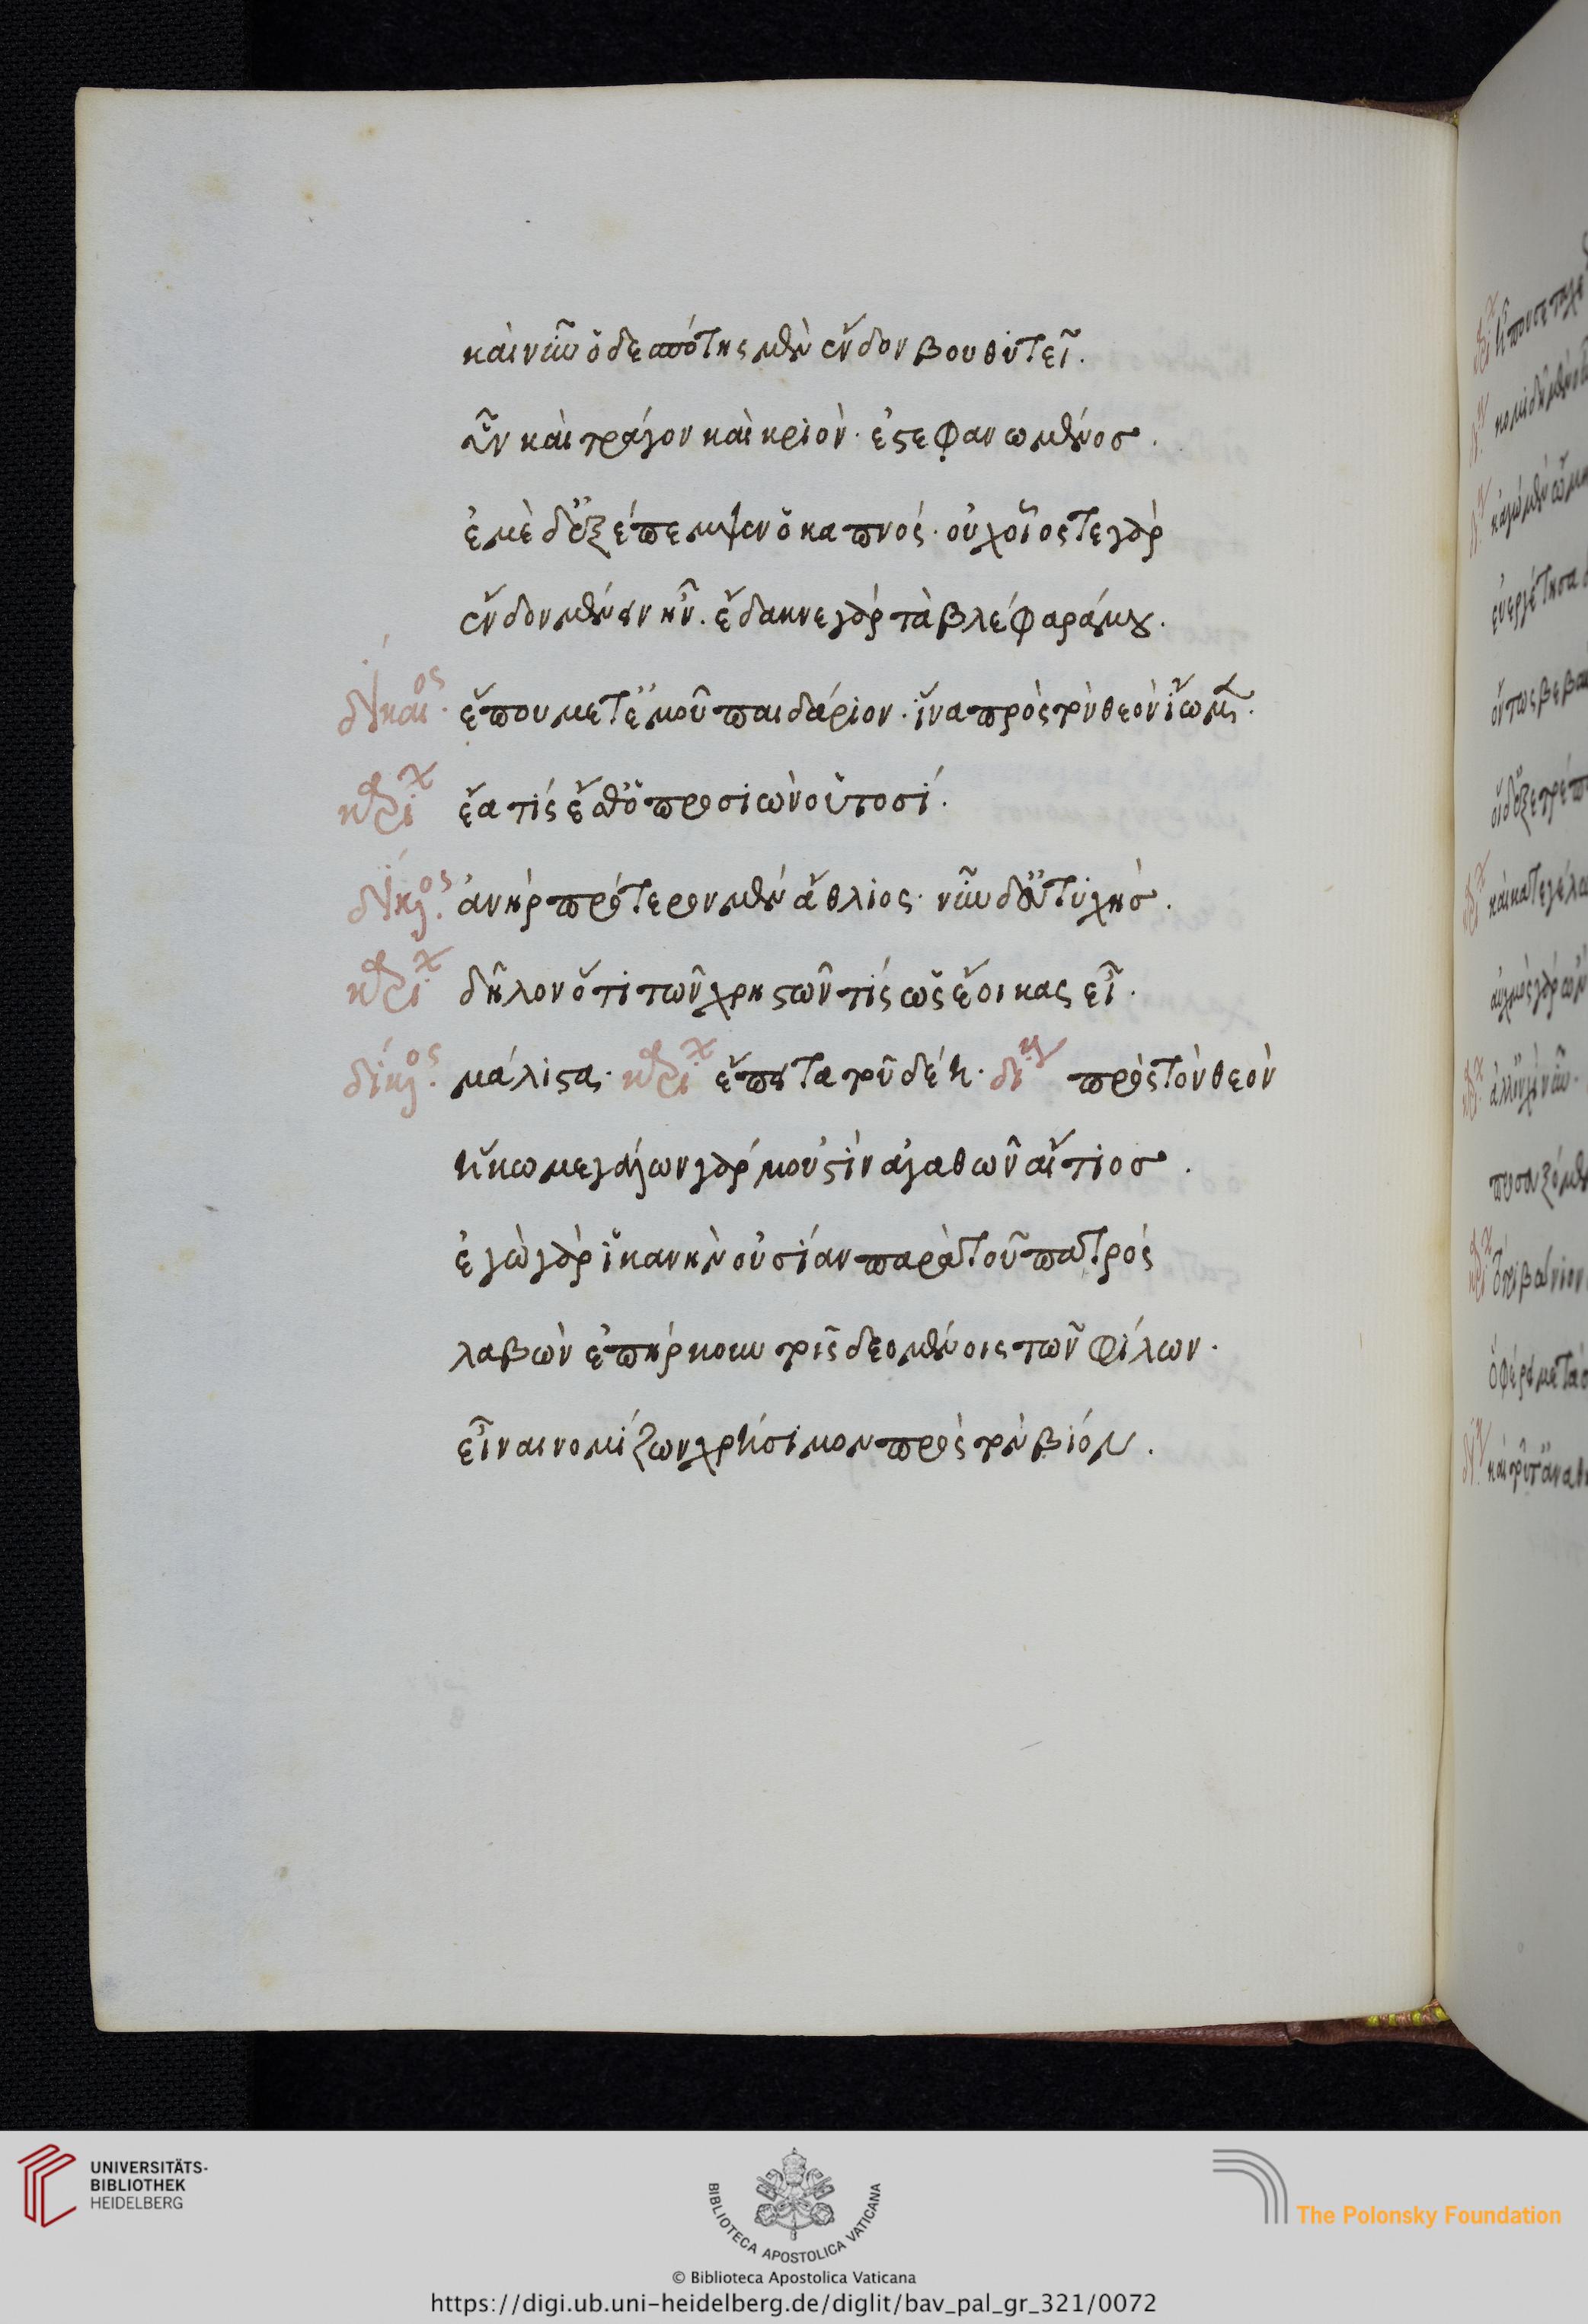 καὶ νῦν ὁ δεσπότης μὲν ἔνδον βουθυτεῖ.
ὗν καὶ τράγον καὶ κριὸν· ἐστεφανωμένος.
ἐμὲ δ' ἐξέπεμψεν ὁ καπνός· οὐχ οἷός τε γὰρ
ἔνδον μένειν ἦν. ἔδακνε γὰρ τὰ βλέφαρά μου.
δίκαιος. ἕπου μετ' ἐμοῦ παιδάριον· ἵνα πρὸς τὸν θεὸν ἴωμεν.
καρί ἔα τίς ἔσθ' ὁ προσιὼν οὑτοσί.
δίκαιος. ἀνὴρ πρότερον μὲν ἄθλιος· νῦν δ' εὐτυχής.
καρί δῆλον ὅτι τῶν χρηστῶν τίς ὡς ἔοικας εἶ.
δίκαιος. μάλιστα· καρί ἔπειτα τοῦ δέῃ· δίκ πρὸς τὸν θεὸν
ἥκω μεγάλων γάρ μοὐστὶν ἀγαθῶν αἴτιος.
ἐγὼ γὰρ ἱκανὴν οὐσίαν παρὰ τοῦ πατρός
λαβὼν ἐπήρκουν τοῖς δεομένοις τῶν φίλων.
εἶναι νομίζων χρήσιμον πρὸς τὸν βίον.
UNIVERSITÄTS-
BIBLIOTHEK
HEIDELBERG
BIBLIOTECA APOSTOLICA VATICANA
The Polonsky Foundation
© Biblioteca Apostolica Vaticana
https://digi.ub.uni-heidelberg.de/diglit/bav_pal_gr_321/0072